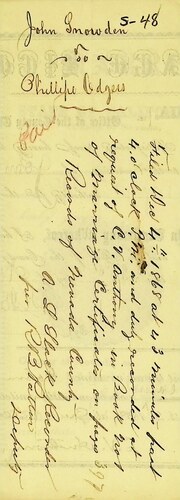 S-48
John Snowden
to
Phillipi Odgers
Paid
Filed Dec 4th 1868 at 43 minutes past
4. o'clock P.M. and duly recorded at
request of C. W. Anthony in Book No 1
of Marriage Certificates on page 397
Records of Nevada County
A. D. Slack Recorder
per R. B. Patten
Deputy